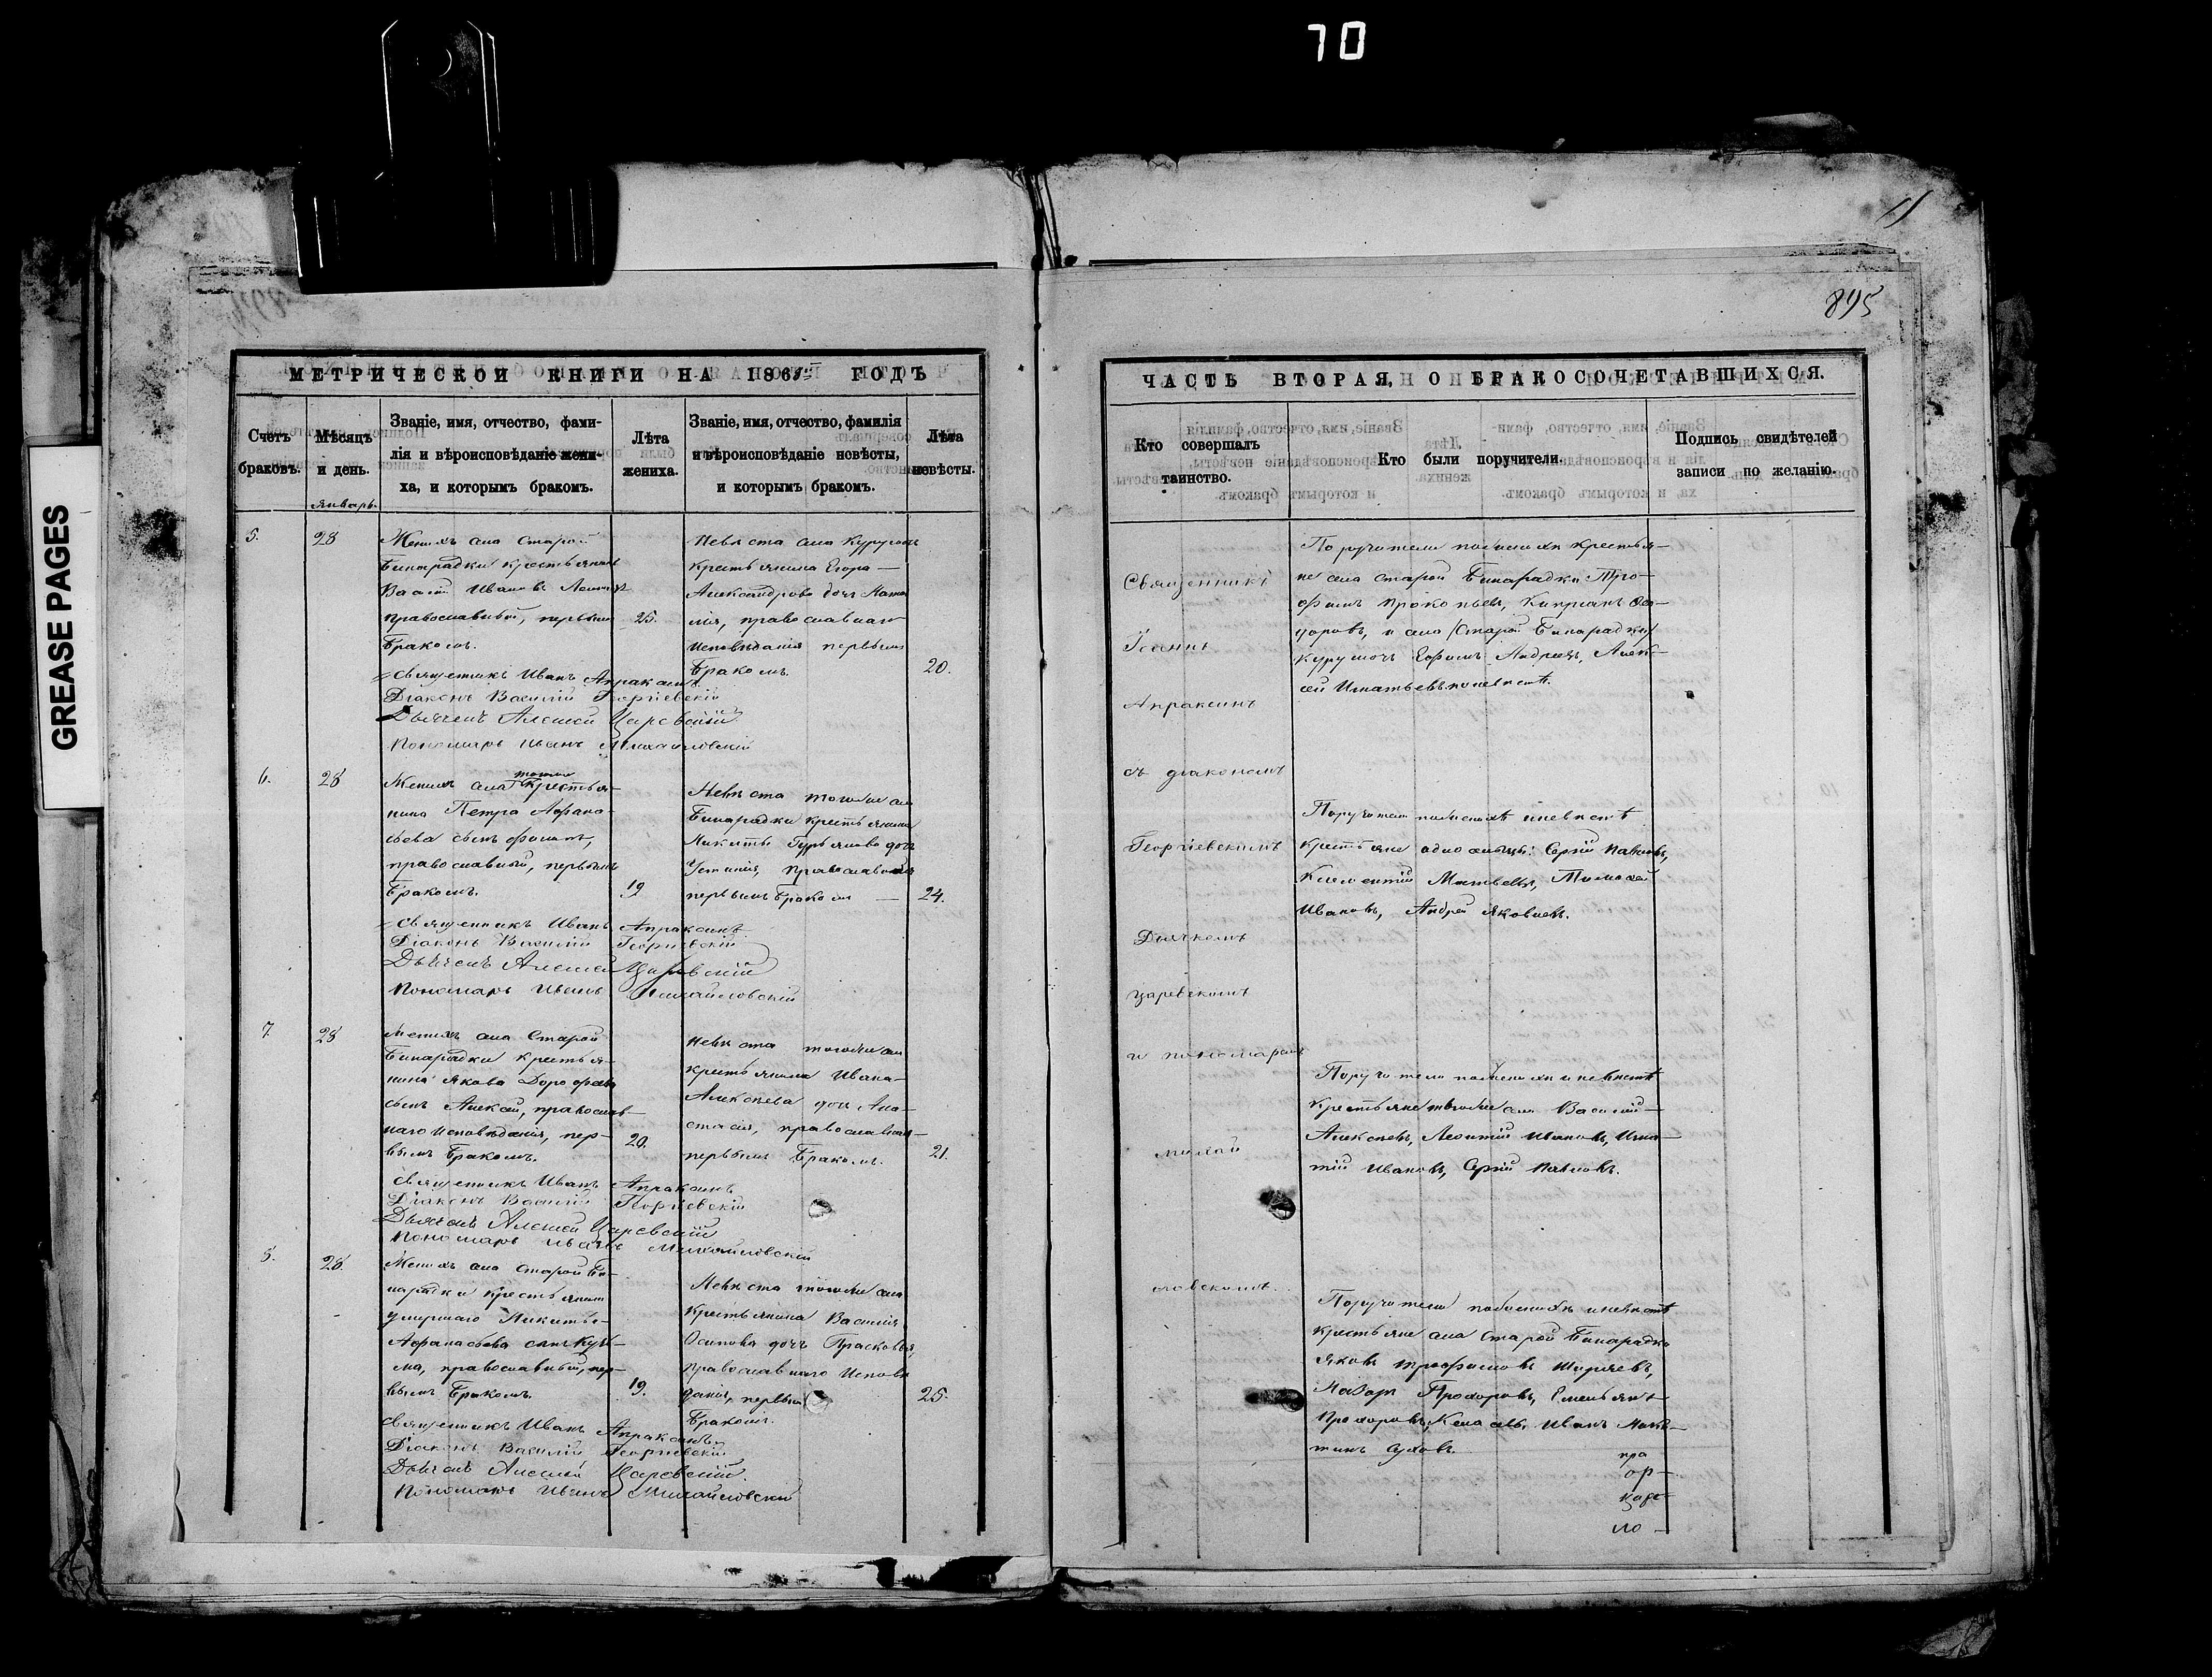 70
GREASE PAGES
11
895
МЕТРИЧЕСКОЙ КНИГИ НА 1868 ГОДЪ
Счетъ браковъ.
Мѣсяцъ и день.
Званіе, имя, отчество, фами-
лія и вѣроисповѣданіе жени-
ха, и которымъ бракомъ.
Лѣта жениха.
Званіе, имя, отчество, фамилія
и вѣроисповѣданіе невѣсты,
и которымъ бракомъ.
Лѣта невѣсты.
Январь.
5.
28
Женихъ села Старой
Бинарадки крестьянинъ
Иванов
православный, первымъ
бракомъ.
25.
Невѣста села
крестьянина Егора
Александрова дочь
православнаго
исповѣданія первымъ
бракомъ.
20.
Священникъ Иванъ Апраксинъ
Діаконъ Василій Георгіевскій
Дьячекъ Алексѣй Царевскій
Пономарь Иванъ Михайловскій
6.
28
Женихъ села тогоже крестья-
нина Петра Афана-
сьева сынъ
православный, первымъ
бракомъ.
19
Невѣста тогоже села
Бинарадки крестьянина
Никиты Гурьянова дочь
Устинія, православная
первымъ бракомъ
24.
Священникъ Иванъ Апраксинъ
Діаконъ Василій Георгіевскій
Дьячекъ Алексѣй Царевскій
Пономарь Иванъ Михайловскій
7.
28
Женихъ села Старой
Бинарадки крестья-
нина Якова Дорофѣева
сынъ Алексѣй, православ-
наго исповѣданія, пер-
вымъ бракомъ.
20.
Невѣста тогоже села
крестьянина Ивана
Алексѣева дочь Ана-
стасія, православная
первымъ бракомъ.
21.
Священникъ Иванъ Апраксинъ
Діаконъ Василій Георгіевскій
Дьячекъ Алексѣй Царевскій
Пономарь Иванъ Михайловскій
28.
Женихъ села Старой Би-
нарадки крестьянина
умершаго Никиты
Афанасьева сынъ Кузь-
ма, православный, пер-
вымъ бракомъ.
19.
Невѣста тогоже села
крестьянина Василія
Осипова дочь Прасковья,
православнаго исповѣ
данія, первымъ
бракомъ.
25.
Священникъ Иванъ Апраксинъ
Діаконъ Василій Георгіевскій
Дьячекъ Алексѣй Царевскій.
Пономарь Иванъ Михайловскій
ЧАСТЬ ВТОРАЯ, О БРАКОСОЧЕТАВШИХСЯ.
Кто совершалъ таинство.
Кто были поручители.
Подпись свидѣтелей записи по желанію.
Священникъ
Іоаннъ
Апраксинъ
съ діакономъ
Георгіевскимъ
Дьячкомъ
Царевскимъ
и пономаремъ
Михай
ловскимъ.
Поручители по женихѣ крестья-
не села старой Бинарадки Тро-
фимъ Прокопьевъ, Кипріанъ Ѳео-
доровъ, и села /Старой Бинарадки/
Ефимъ Андреевъ, Алек-
сѣй Игнатьевъ по невѣстѣ.
Поручители по женихѣ и невѣстѣ
крестьяне односельцы: Сергій Павловъ,
Климентій Матвеевъ, Тимофей
Ивановъ, Андрей Яковлевъ.
Поручители по женихѣ и невѣстѣ
крестьяне тогоже села Василій
Алексѣевъ, Леонтій Ивановъ, Игна-
тій Ивановъ, Сергій Павловъ.
Поручители по женихѣ и невѣстѣ
крестьяне села Старой Бинарадки
Яковъ Трофимовъ Ширяевъ,
Назаръ Прохоровъ, Емельянъ
Прохоровъ, Иванъ Ники-
тинъ